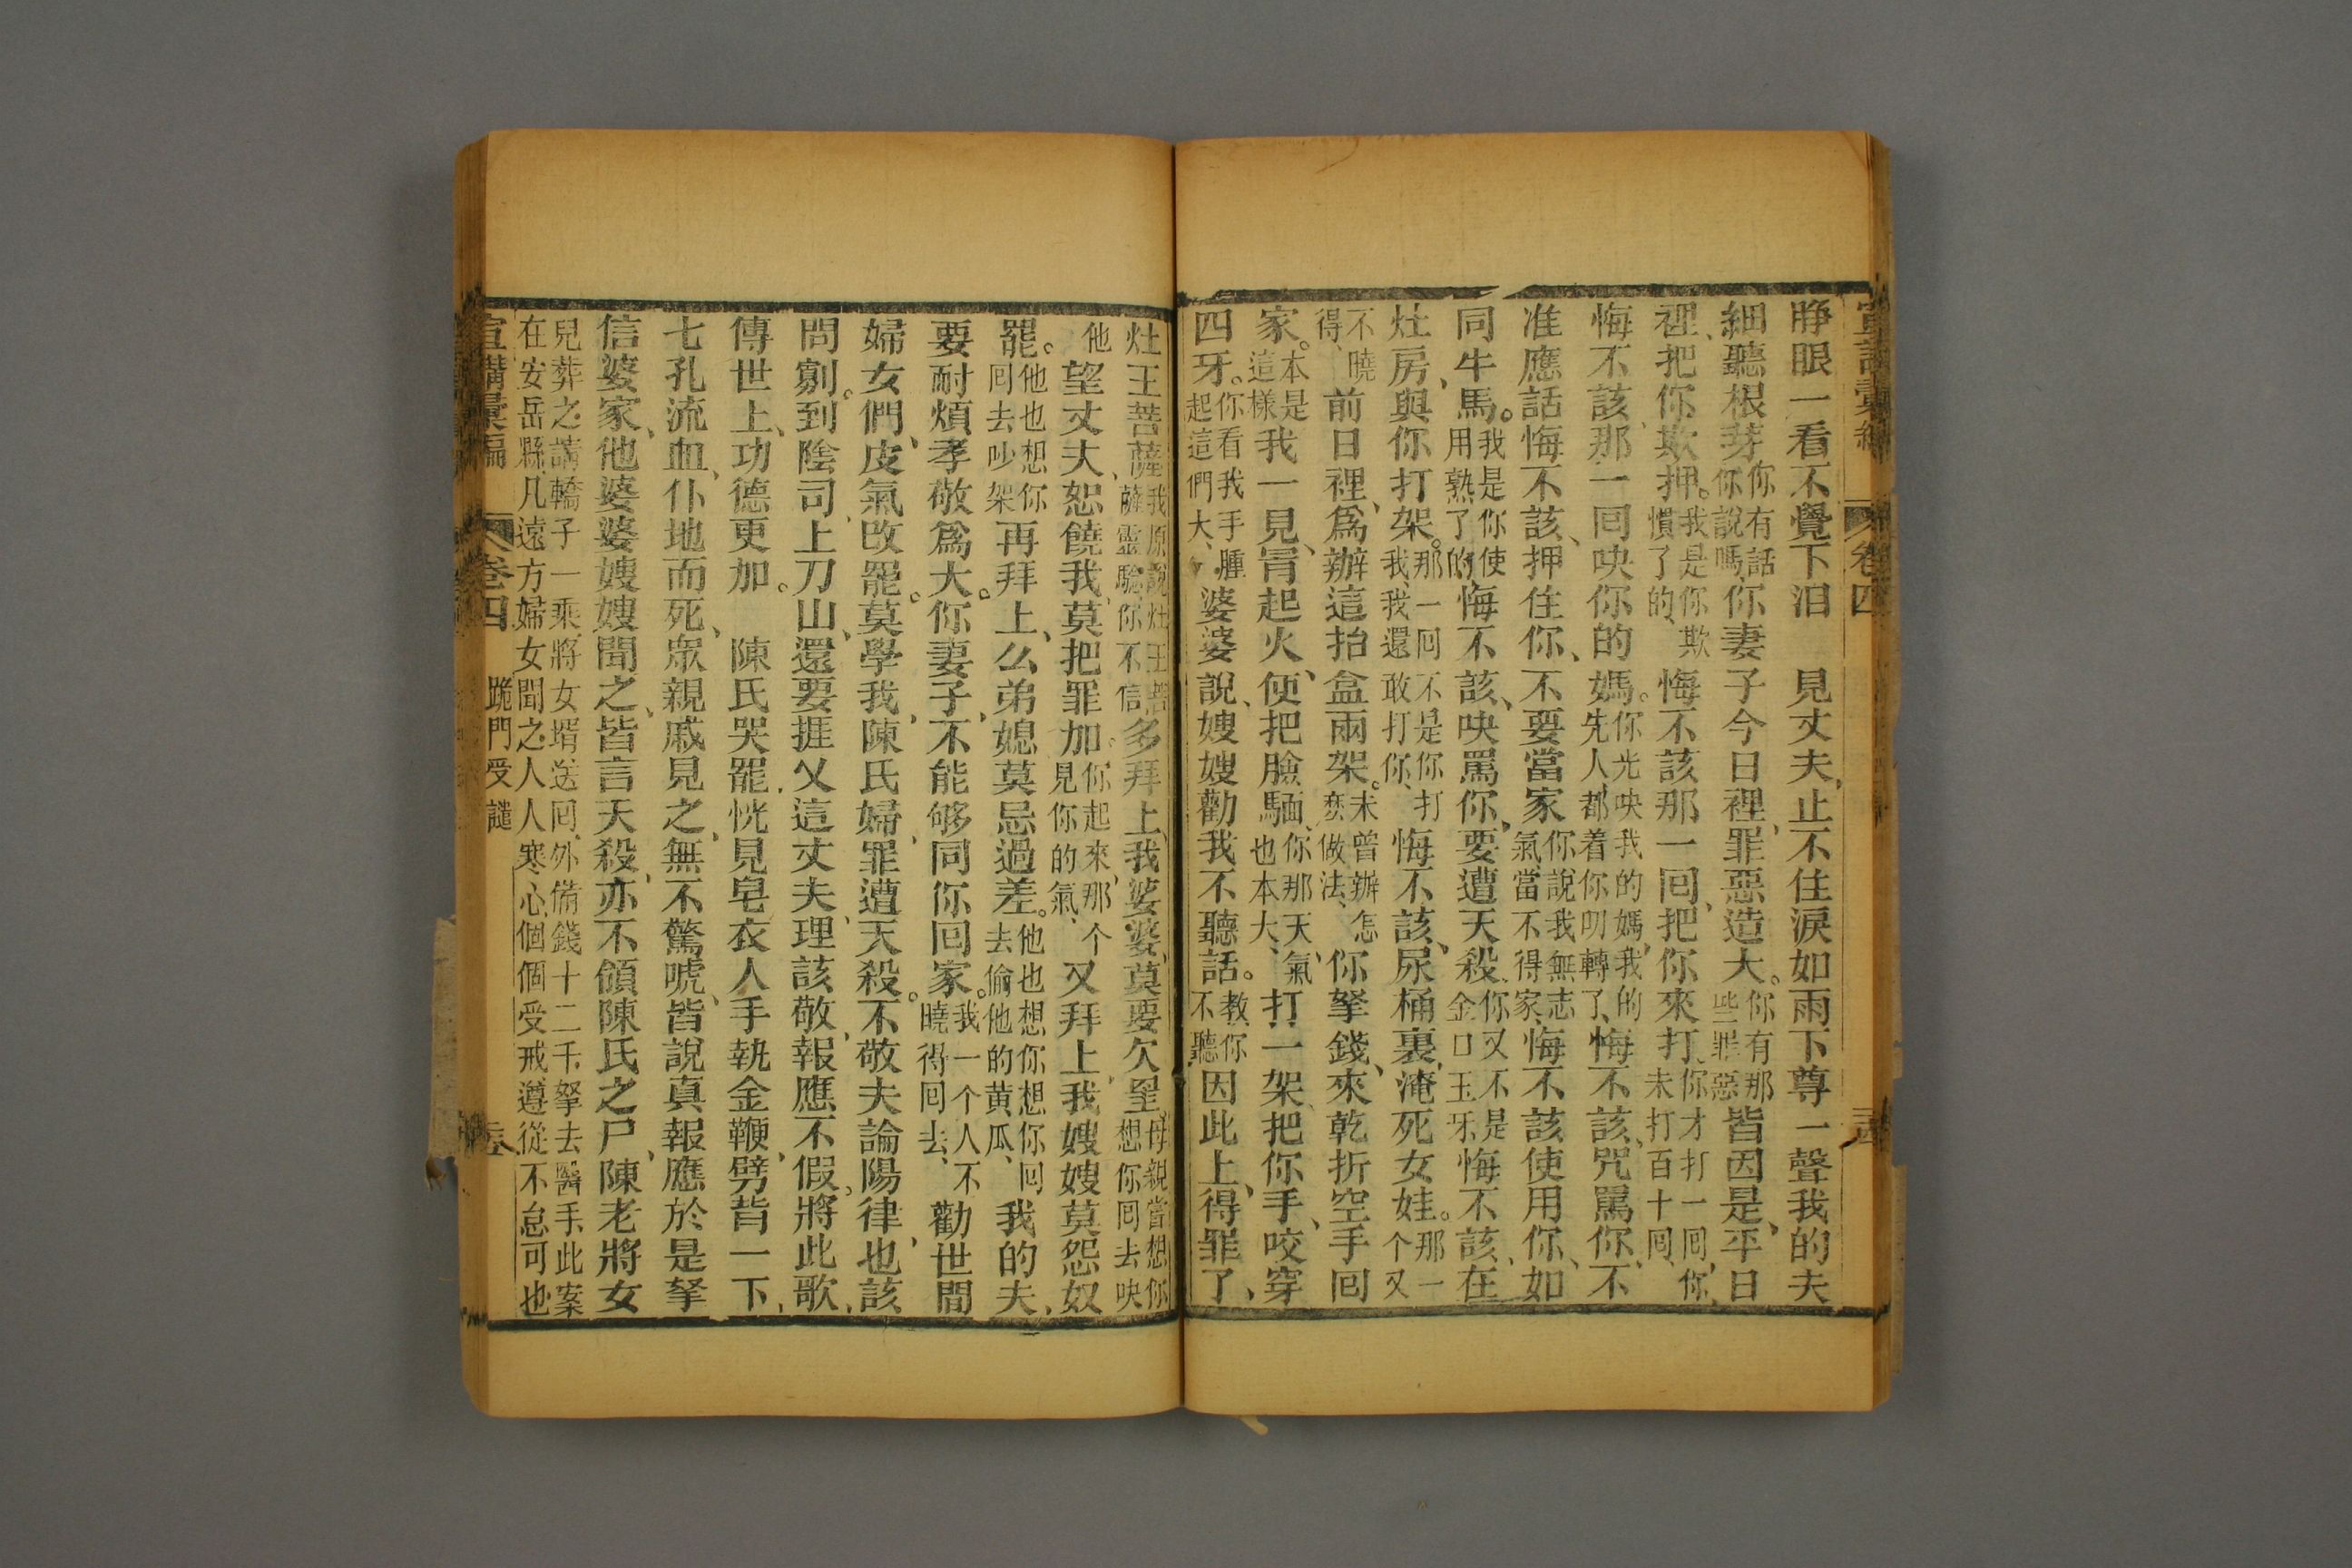 宣講彙編
卷四
睁眼一看不覺下泪 見丈夫止不住淚如雨下尊一聲我的夫
細聽根芽你有話你說嗎你妻子今日裡罪惡造大。你有那些罪惡皆因是平日
裡把你欺押。我是你欺慣了的悔不該那一囘把你來打你才打一囘你未打百十囘
悔不該那一囘吷你的媽。你光吷我的媽我的先人都着你叨轉了悔不該咒駡你不
准應話悔不該押住你不要當家你說我無志氣當不得家悔不該使用你如
同牛馬。我是你使用熟了的悔不該吷罵你要遭天殺你又不是金口玉牙悔不該在
灶房與你打架。那一囘不是你打我我還敢打你悔不該尿桶裏淹死女娃。那一个又
不曉得前日裡為辦這抬盒兩架。未曾辦怎麽做法你拏錢來乾折空手囘
家。本是這樣我一見冐起火便把臉䩄你那天氣也本大打一架把你手咬穿
四牙。你看我手腫起這們大婆婆說嫂嫂勸我不聽話。教你不聽因此上得罪了
灶王菩薩我原說灶王菩薩靈驗你不信多拜上我婆婆莫要欠罣母親當想你想你囘去吷
他望丈夫恕饒我莫把罪加。你起來那个見你的氣又拜上我嫂嫂莫怨奴
罷。他也想你囘去吵架再拜上么弟媳莫忌過差。他也想你想你囘去偷他的黄瓜我的夫
要耐煩孝敬為大。你妻子不能够同你囘家。我一个人不曉得囘去勸世間
婦女們皮氣改罷。莫學我陳氏婦罪遭天殺。不敬夫論陽律也該
問剮。到陰司上刀山還要捱乂這丈夫理該敬報應不假。將此歌
傳世上功德更加。 陳氏哭罷恍見皂衣人手執金鞭劈背一下
七孔流血仆地而死衆親戚見之無不驚唬皆說真報應於是拏
信婆家他婆婆嫂嫂聞之皆言天殺亦不領陳氏之尸陳老將女
兒葬之講轎子一乘將女壻送囘外備錢十二千拏去醫手此案
在安岳縣凡遠方婦女聞之人人寒心個個受戒遵從不怠可也
宣講彙編
卷四
跪門受譴